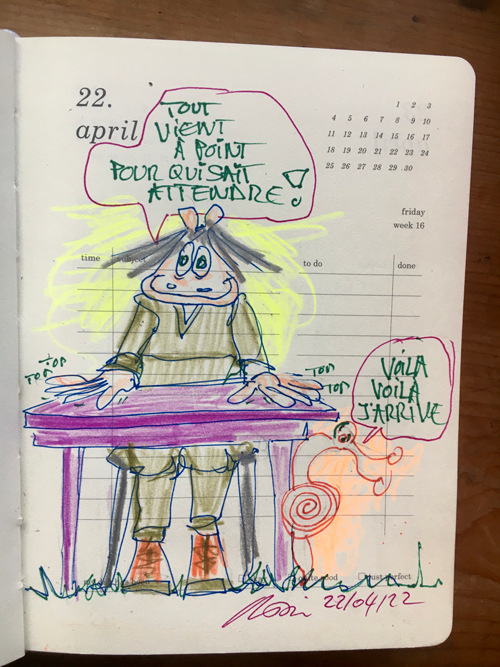 22.
april
TOUT
VIENT
À POINT
POUR QUI SAIT
ATTENDRE!
1 2 3
4 5 6 7 8 9 10
11 12 13 14 15 16 17
18 19 20 21 22 23 24
25 26 27 28 29 30
friday
week 16
time subject
to do done
TOP
TOP
TOP
TOP
VOILÀ
VOILÀ
J'ARRIVE
good just perfect
22/04/22